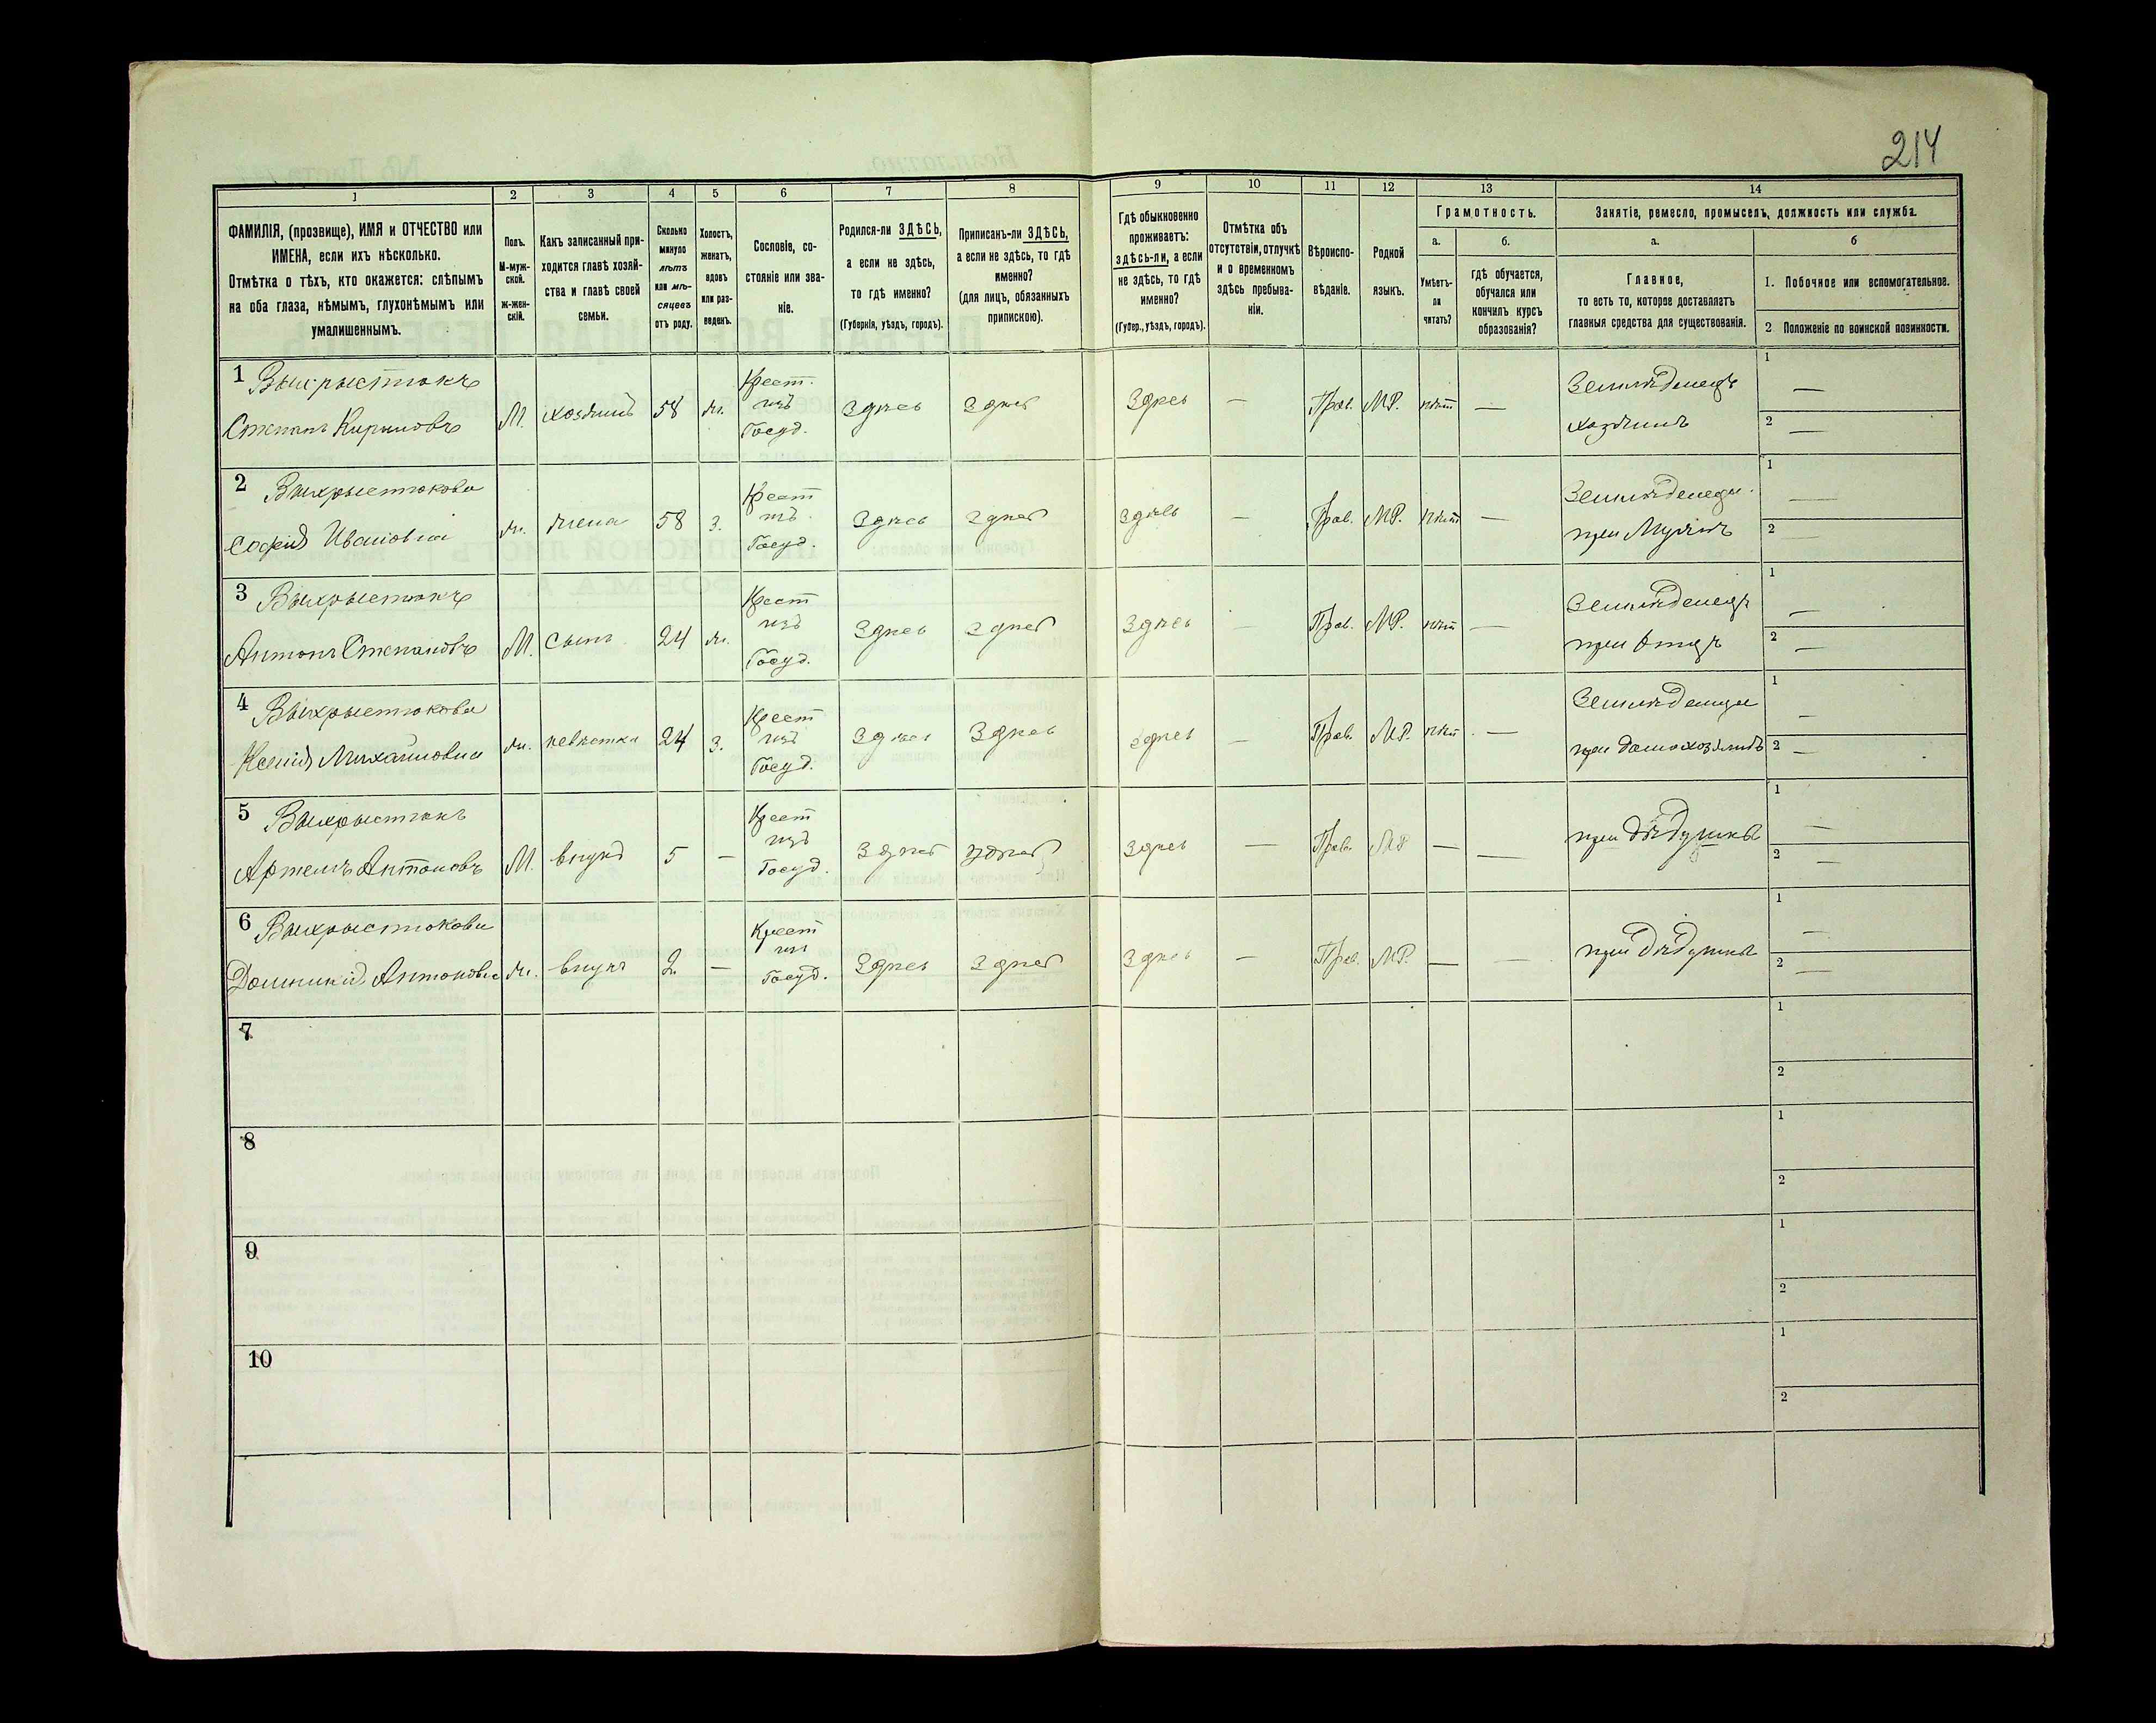 214
1 2 3 4 5 6 7 8 9 10 11 12 13 14
ФАМИЛІЯ, (прозвище), ИМЯ и ОТЧЕСТВО или
ИМЕНА, если ихъ нѣсколько.
Отмѣтка о тѣхъ, кто окажется: слѣпымъ
на оба глаза, нѣмымъ, глухонѣмымъ или
умалишеннымъ.
Полъ.
М-муж-
ской.
Ж-жен-
скій.
Какъ записанный при-
ходится главѣ хозяй-
ства и главѣ своей
семьи.
Сколько
минуло
лѣтъ
или мѣ-
сяцевъ
отъ роду.
Холостъ,
женатъ,
вдовъ
или раз-
веденъ.
Сословіе, со-
стояніе или зва-
ніе.
Родился-ли ЗДѢСЬ,
а если не здѣсь,
то гдѣ именно?
(Губернія, уѣздъ, городъ).
Приписанъ-ли ЗДѢСЬ,
а если не здѣсь, то гдѣ
именно?
(для лицъ, обязанныхъ
припискою).
Гдѣ обыкновенно
проживаетъ:
здѣсь-ли, а если
не здѣсь, то гдѣ
именно?
(Губер., уѣздъ, городъ).
Отмѣтка объ
отсутствіи, отлучкѣ
и о временномъ
здѣсь пребыва-
ніи.
Вѣроиспо-
вѣданіе.
Родной
языкъ.
Грамотность.
а.
Умѣетъ-
ли
читать?
б.
гдѣ обучается,
обучался или
кончилъ курсъ
образованія?
Занятіе, ремесло, промыселъ, должность или служба.
а.
Главное,
то есть то, которое доставляетъ
главныя средства для существованія.
б
1. Побочное или вспомогательное.
2 Положеніе по воинской повинности.
1 Выхрыстюкъ
Степанъ Кириловъ М. хозяинъ 58 ж. Крест. изъ Госуд. Здѣсь Здѣсь Здѣсь — Прав. МР. нѣт — Земледѣлецъ хозяинъ 1 — 2 —
2 Выхрыстюкова
Софія Иванова ж. жена 58 з. Крест изъ Госуд. Здѣсь Здѣсь Здѣсь — Прав. МР. нѣт — Земледѣлец. при Мужѣ 1 — 2 —
3 Выхрыстюкъ
Антонъ Степановъ М. сынъ 24 ж. Крест изъ Госуд. Здѣсь Здѣсь Здѣсь — Прав. МР. нѣт — Земледѣлецъ при Отцѣ 1 — 2 —
4 Выхрыстюкова
Ксенія Михайлова ж. невѣстка 24 з. Крест изъ Госуд. Здѣсь Здѣсь Здѣсь — Прав. МР. нѣт — при домохозяинѣ 1 — 2 —
5 Выхрыстюкъ
Артемъ Антоновъ М. внукъ 5 — Крест изъ Госуд. Здѣсь Здѣсь Здѣсь — Прав. МР — — при дѣдушкѣ 1 — 2 —
6 Выхрыстюкова
Домникія Антонова ж. внука 2 — Крест изъ Госуд. Здѣсь Здѣсь Здѣсь — Прав. МР. — — при дѣдушкѣ 1 — 2 —
7 1 2
8 1 2
9 1 2
10 1 2